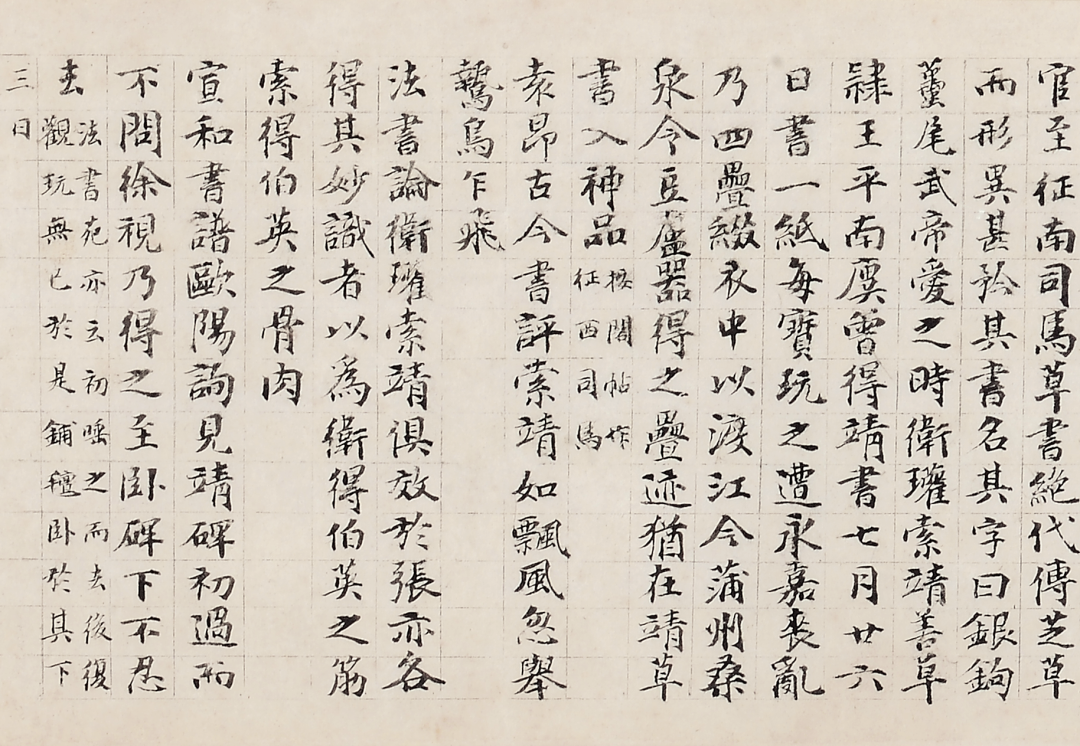 官至征南司馬草書絶代傳芝草
而形異甚矜其書名其字曰銀鉤
蠆尾武帝愛之時衛瓘索靖善草
隸王平南廙曽得靖書七月廿六
日書一紙每寶玩之遭永嘉喪亂
乃四疊綴衣中以渡江今蒲州桑
泉令豆盧器得之疊迹猶在靖草
書入神品
按閣帖作
征西司馬
袁昂古今書評索靖如飄風忽舉
鷙鳥乍飛
法書論衛瓘索靖俱效於張亦各
得其妙識者以為衛得伯英之筋
索得伯英之骨肉
宣和書譜歐陽詢見靖碑初過而
不問徐視乃得之至卧碑下不忍
去
法書苑亦云初唾之而去後復
觀玩無已於是鋪氊卧於其下
三日